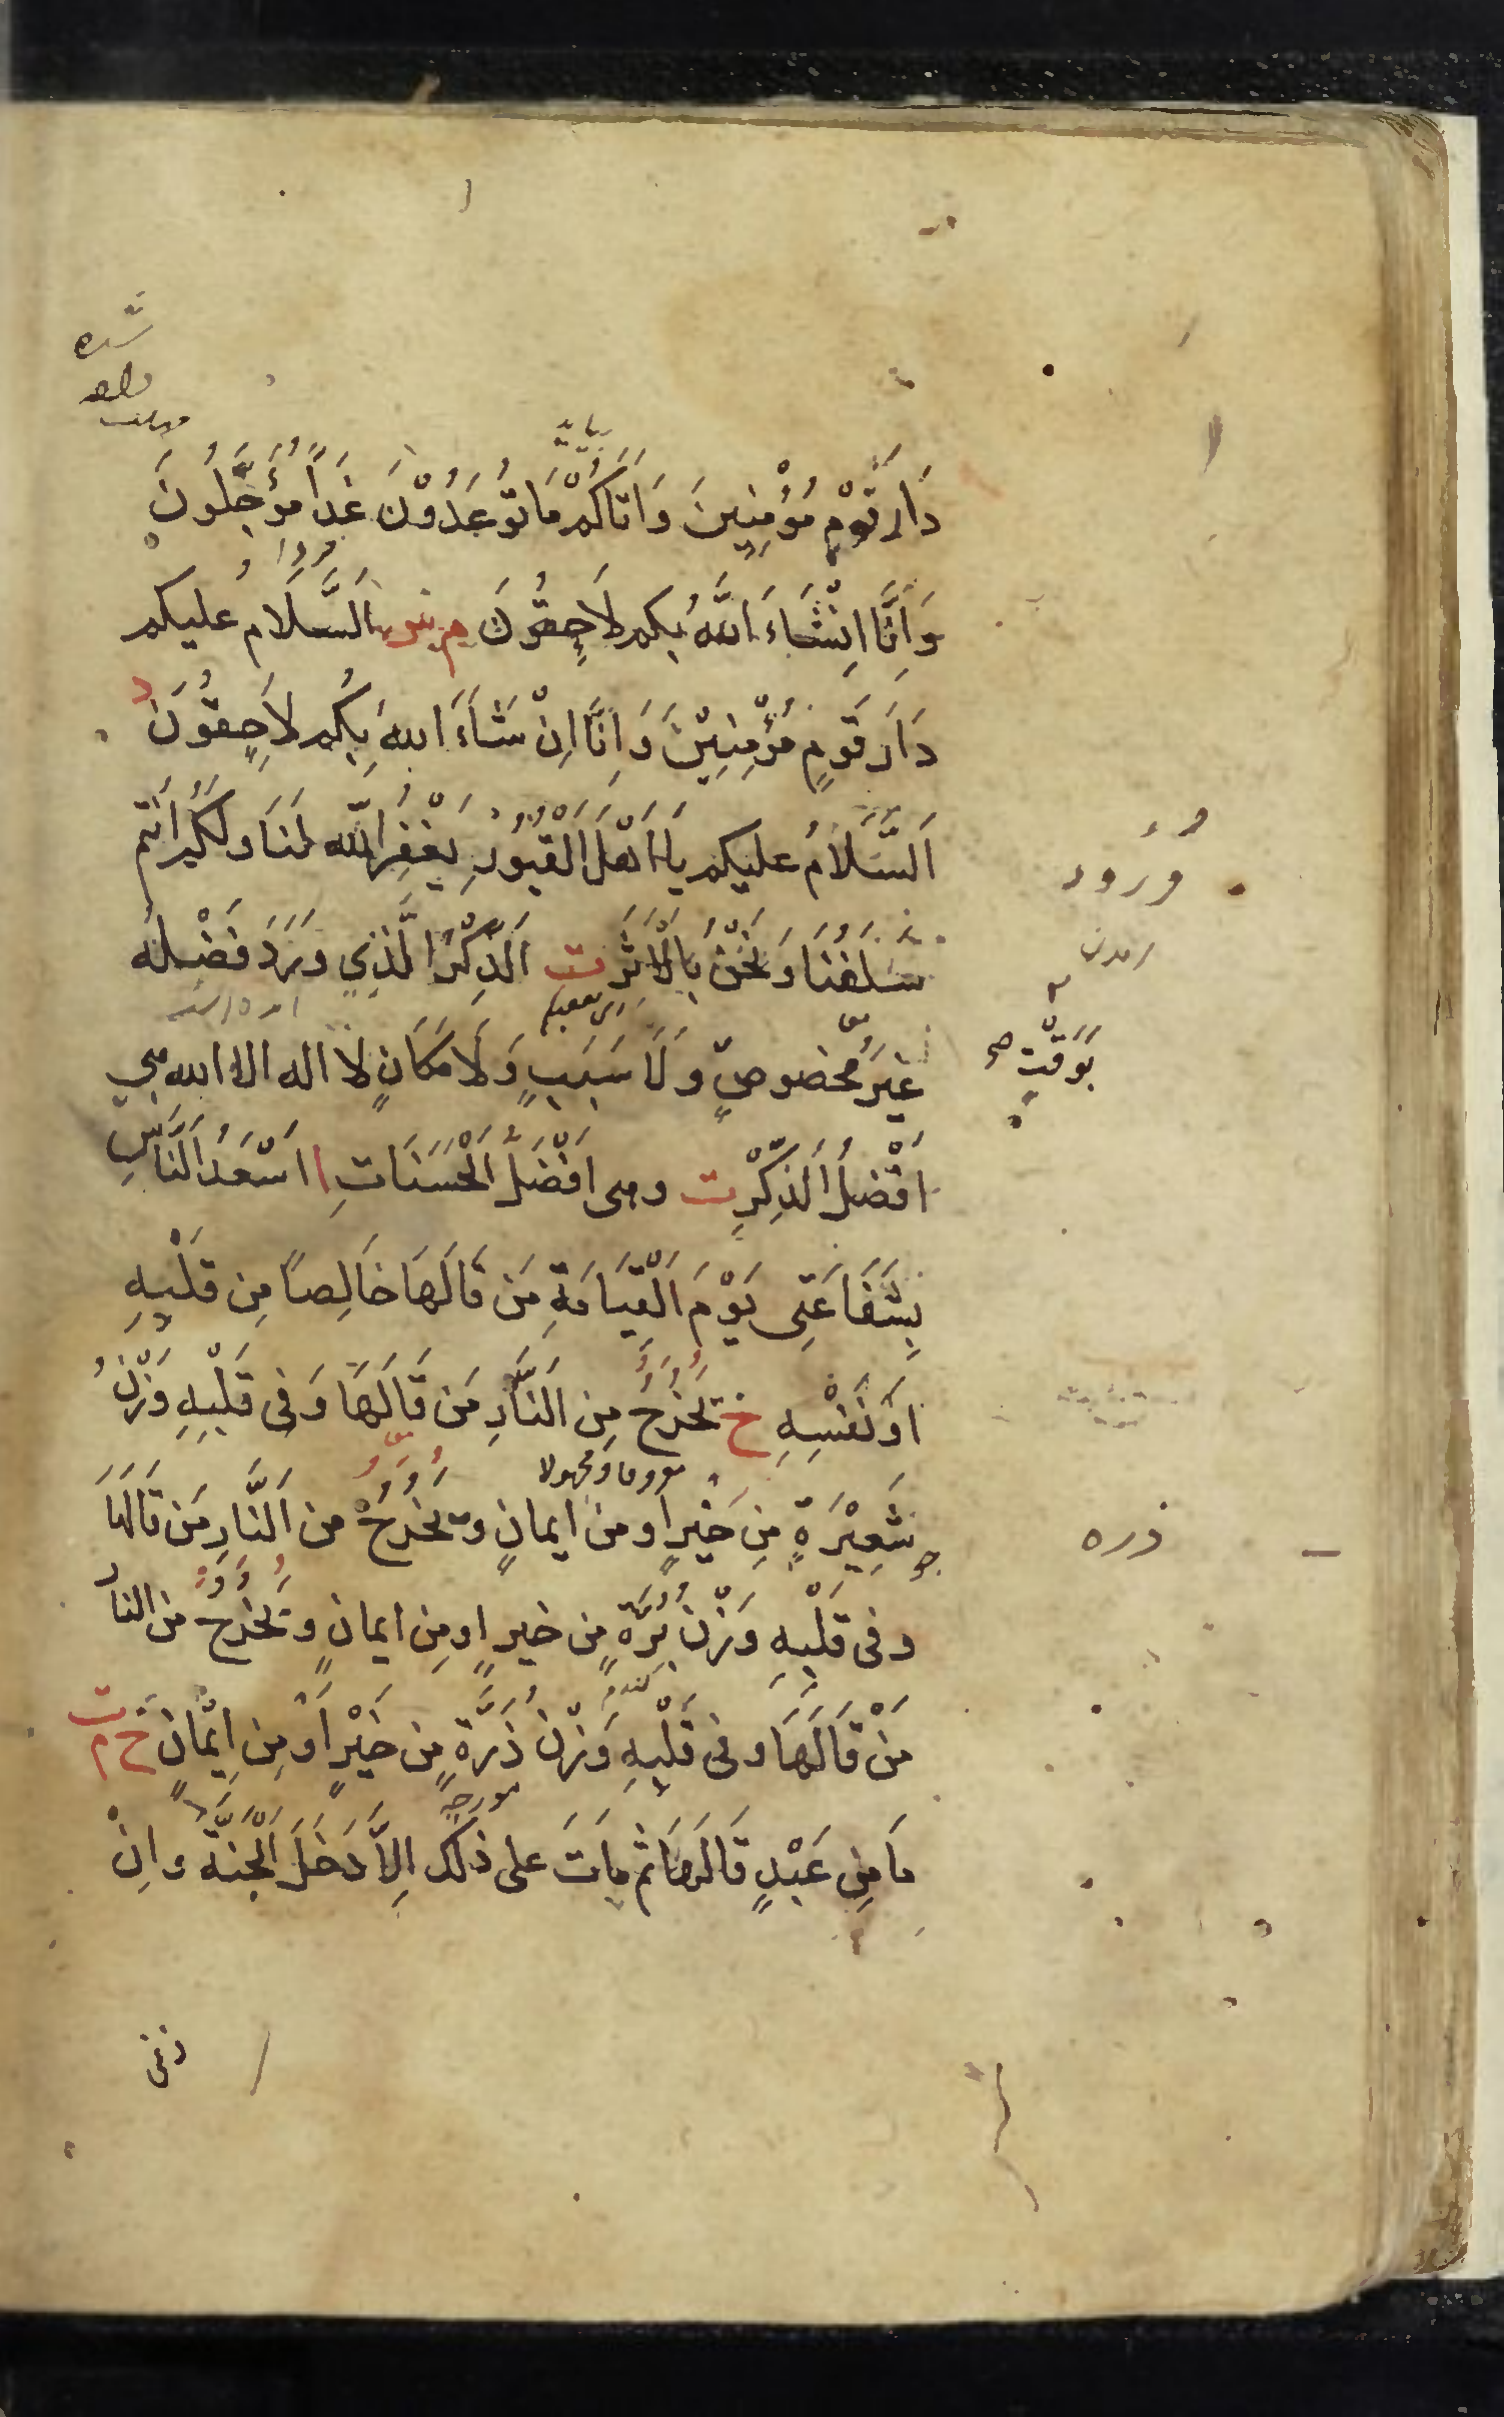 دَارَ قَوْمٍ مُؤْمِنِينَ وَاَتَاكُمْ مَا تُوعَدُوْنَ غَدًا مُؤَجَّلُونَ
وَاِنَّا اِنْشَاءَ اللّٰهُ بِكم لَاحِقُونَ م س اَلسَّلَامُ عليكم
دَارَ قَومٍ مُؤْمِنِيْنَ وَاِنَّا اِنْ شَاءَ الله بِكُم لَاحِقُونَ د
اَلسَّلَامُ عليكم يَا اَهْلَ الْقُبُورِ يَغْفِرُ الله لَنَا وَلَكُمْ اَنْتُم
سَلَفُنَا وَنَحْنُ بِالْاَثَرِ ت اَلذِّكْرُ الَّذِي وَرَدَ فَضْلُهُ
غيرَ مخصوصٍ بوَقْتٍ صح وَلَا سَبَبٍ وَلَا مَكَانٍ لا اله الا الله هي
اَفْضَلُ الذِّكْرِ ت وهى اَفْضَلُ الْحَسَنَاتِ ا اَسْعَدُ النَّاسِ
بِشَفَاعَتِى يَوْمَ الْقِيَامَةِ مَن قَالَهَا خَالِصًا مِن قَلْبِهِ
اَوْ نَفْسِهِ خ يَخْرُجُ مِن النَّارِ مَن قَالَهَا وَفِى قَلْبِهِ وَزْنُ
شَعِيْرَةٍ مِن خَيْرٍ اَو من ايمانٍ ويَخْرُجُ من النَّارِ مَن قَالَهَا
وفى قَلْبِهِ وَزْنُ بُرَّةٍ مِن خيرٍ او مِن ايمانٍ ويَخْرُجُ من النار
مَنْ قَالَهَا وفى قَلْبِهِ وَزْنُ ذَرَّةٍ مِن خَيْرٍ اَوْ مِن اِيْمَانٍ خ م ت
مَا مِن عَبْدٍ قَالَهَا ثم مَاتَ على ذلك اِلَّا دَخَلَ الْجَنَّةَ واِنْ
ورود
ذره
معروفا ومجهولا
كندم
مورجه
زنى